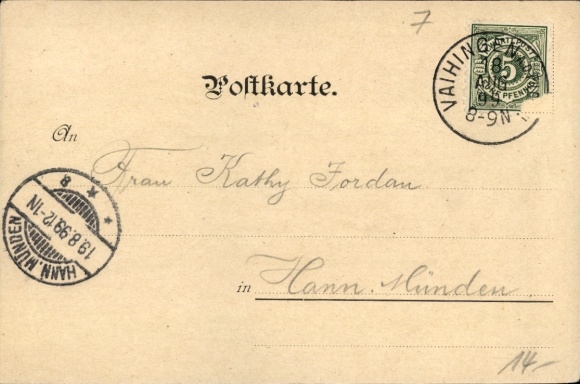 7
VAIHINGEN
18
AUG
99
8-9N.
5
PFENNIG
Postkarte.
An
Frau Kathy Jordan
HANN. MÜNDEN
19.8.99.12-1N
* * 8
in Hann. Münden.
14-